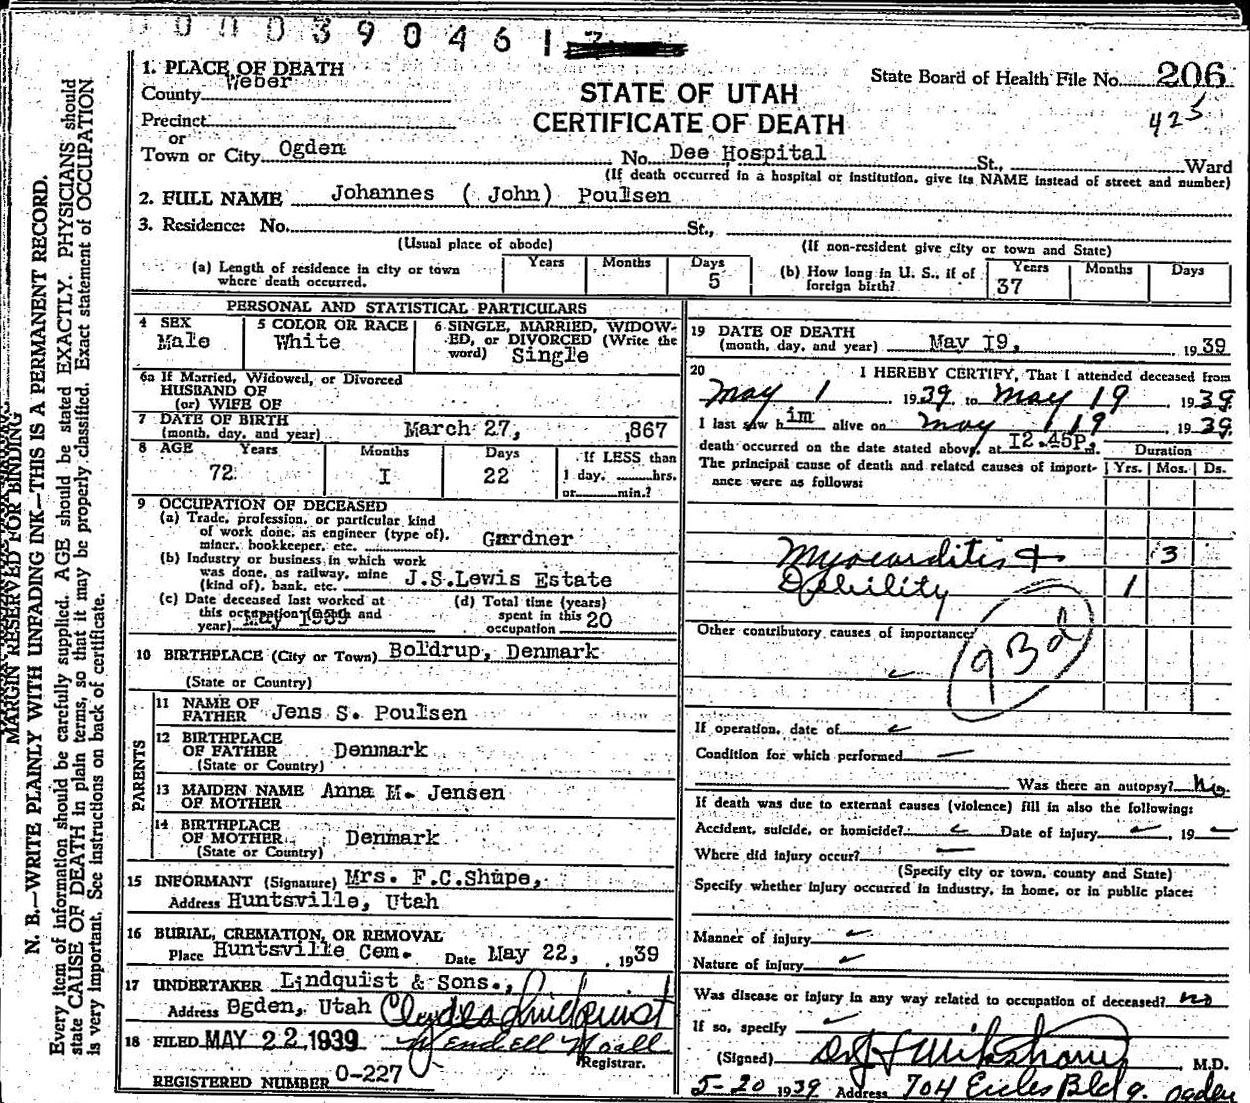 0 0 0 0 3 9 0 4 6 1
1. PLACE OF DEATH
County Weber
State Board of Health File No. 206
425
STATE OF UTAH
CERTIFICATE OF DEATH
Precinct
or
Town or City Ogden No. Dee Hospital St., Ward
(If death occurred in a hospital or institution, give its NAME instead of street and number)
2. FULL NAME Johannes ( John) Poulsen
3. Residence: No. St.,
(Usual place of abode) (If non-resident give city or town and State)
(a) Length of residence in city or town where death occurred. Years Months Days 5
(b) How long in U. S., if of foreign birth? Years 37 Months Days
PERSONAL AND STATISTICAL PARTICULARS
4 SEX Male
5 COLOR OR RACE White
6 SINGLE, MARRIED, WIDOW-
ED, or DIVORCED (Write the
word) Single
6a If Married, Widowed, or Divorced
HUSBAND OF
(or) WIFE OF
7 DATE OF BIRTH
(month, day, and year) March 27, 1867
8 AGE Years 72 Months I Days 22 If LESS than
1 day, hrs.
or min.?
9 OCCUPATION OF DECEASED
(a) Trade, profession, or particular kind
of work done, as engineer (type of),
miner, bookkeeper, etc. Gardner
(b) Industry or business in which work
was done, as railway, mine
(kind of), bank, etc. J.S.Lewis Estate
(c) Date deceased last worked at
this occupation (month and
year) May 1939
(d) Total time (years)
spent in this
occupation 20
10 BIRTHPLACE (City or Town) Boldrup, Denmark
(State or Country)
PARENTS
11 NAME OF
FATHER Jens S. Poulsen
12 BIRTHPLACE
OF FATHER Denmark
(State or Country)
13 MAIDEN NAME
OF MOTHER Anna M. Jensen
14 BIRTHPLACE
OF MOTHER Denmark
(State or Country)
15 INFORMANT (Signature) Mrs. F.C.Shupe,
Address Huntsville, Utah
16 BURIAL, CREMATION, OR REMOVAL
Place Huntsville Cem. Date May 22, , 1939
17 UNDERTAKER Lindquist & Sons.,
Address Ogden, Utah Clyde Lindquist
18 FILED MAY 22 1939 Wendell Noall
Registrar.
REGISTERED NUMBER 0-227
19 DATE OF DEATH
(month, day, and year) May I9, , 1939
20 I HEREBY CERTIFY, That I attended deceased from
May 1 , 1939, to May 19 , 1939
I last saw him alive on May 19 , 1939
death occurred on the date stated above, at I2.45P. m.
Duration
The principal cause of death and related causes of import-
ance were as follows: Yrs. Mos. Ds.
Myocarditis + 3
Debility 1
Other contributory causes of importance:
93d
If operation, date of
Condition for which performed
Was there an autopsy? No
If death was due to external causes (violence) fill in also the following:
Accident, suicide, or homicide? Date of injury , 19
Where did injury occur?
(Specify city or town, county and State)
Specify whether injury occurred in industry, in home, or in public place:
Manner of injury
Nature of injury
Was disease or injury in any way related to occupation of deceased? no
If so, specify
(Signed) , M.D.
5-20 1939 Address 704 Eccles Bldg. Ogden
MARGIN RESERVED FOR BINDING
N. B.—WRITE PLAINLY WITH UNFADING INK—THIS IS A PERMANENT RECORD.
Every item of information should be carefully supplied. AGE should be stated EXACTLY. PHYSICIANS should
state CAUSE OF DEATH in plain terms, so that it may be properly classified. Exact statement of OCCUPATION
is very important. See instructions on back of certificate.